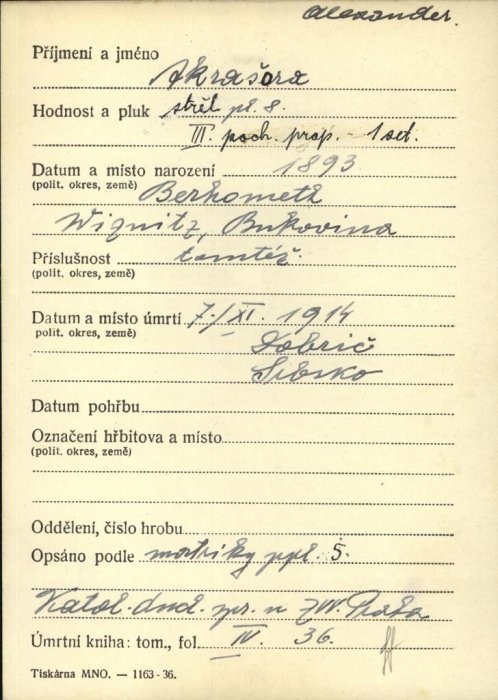 Alexander.
Příjmení a jméno
Akrašora
Hodnost a pluk střel. pl. 8.
III. poch. prap. - 1 set.
Datum a místo narození 1893
(polit. okres, země) Berhometh
Wiznitz, Bukovina
Příslušnost tamtéž.
(polit. okres, země)
Datum a místo úmrtí 7./XI. 1914
polit. okres, země)
Dobrič
Srbsko
Datum pohřbu
Označení hřbitova a místo
(polit. okres, země)
Oddělení, číslo hrobu
Opsáno podle matriky ppl. 5.
Katol. duch. spr. u ZVV. Praha
Úmrtní kniha: tom., fol. IV. 36.
Tiskárna MNO. — 1163-36.